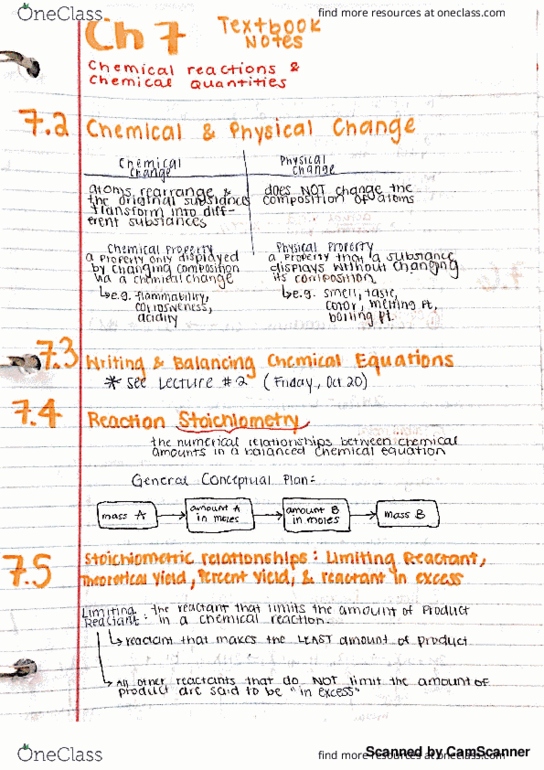 OneClass
find more resources at oneclass.com
Ch 7 Textbook Notes
Chemical reactions &
Chemical Quantities
7.2 Chemical & Physical Change
Chemical Change
Physical Change
atoms rearrange &
the original substance
transform into diff-
erent substances
does NOT change the
composition of atoms
Chemical Property
a property only displayed
by changing composition
via a chemical change
↳ e.g. flammability,
corrosiveness,
acidity
Physical Property
a property that a substance
displays without changing
its composition
↳ e.g. smell, taste,
color, melting pt,
boiling pt.
7.3 Writing & Balancing Chemical Equations
* see Lecture #2 (Friday, Oct 20)
7.4 Reaction Stoichiometry
the numerical relationships between chemical
amounts in a balanced chemical equation
General Conceptual Plan:
mass A → amount A in moles → amount B in moles → mass B
7.5 Stoichiometric relationships: Limiting Reactant,
Theoretical yield, Percent yield, & reactant in excess
Limiting Reactant: the reactant that limits the amount of product
in a chemical reaction.
↳ reactant that makes the LEAST amount of product
↳ All other reactants that do NOT limit the amount of
product are said to be "in excess"
OneClass
find more resources at oneclass.com
Scanned by CamScanner